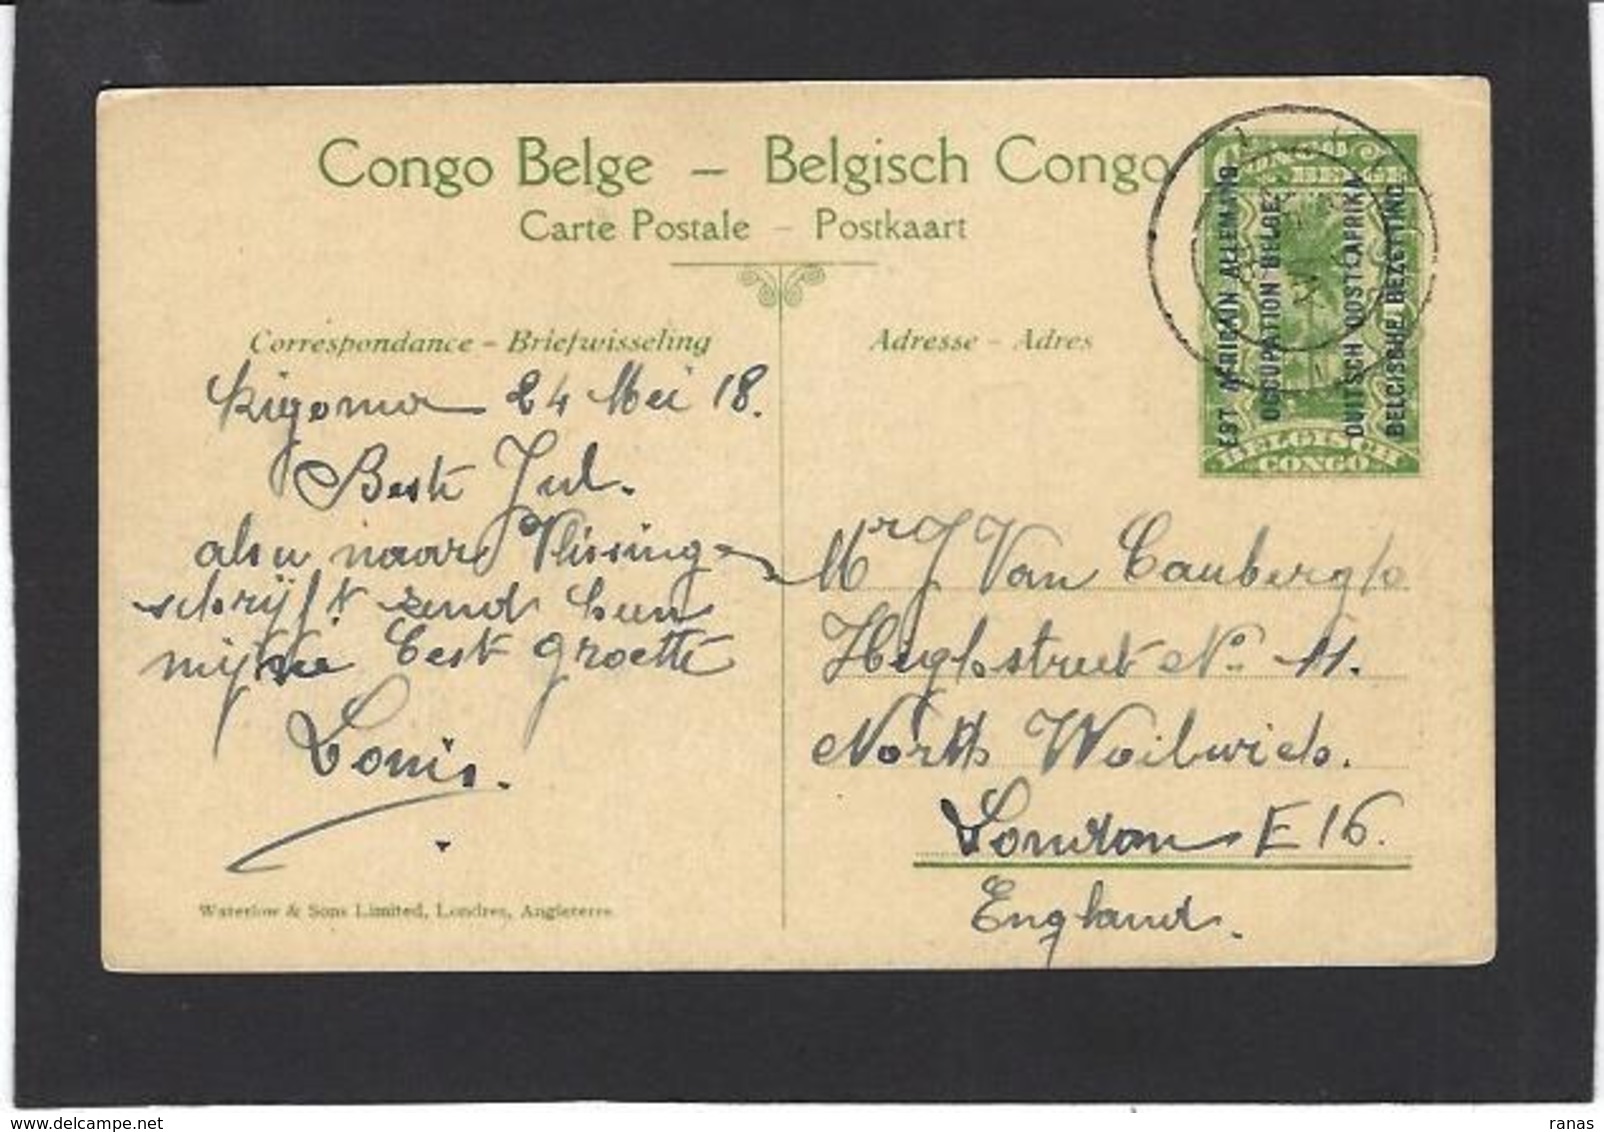 Congo Belge – Belgisch Congo
Carte Postale – Postkaart
Correspondance – Briefwisseling
Adresse – Adres
CONGO BELGE
EST AFRICAIN ALLEMAND
OCCUPATION BELGE.
DUITSCH OOST-AFRIKA
BELGISCHE BEZETTING.
BELGISCH
CONGO
Kigoma 24 Mei 18.
Beste Jul.
als u naar Vlissing
schrijft zend hun
mijne best groette
Louis.
Mr J Van Cauberghe
Highstreet No. 11.
North Woilwich.
London E 16.
England.
Waterlow & Sons Limited, Londres, Angleterre.
ranas